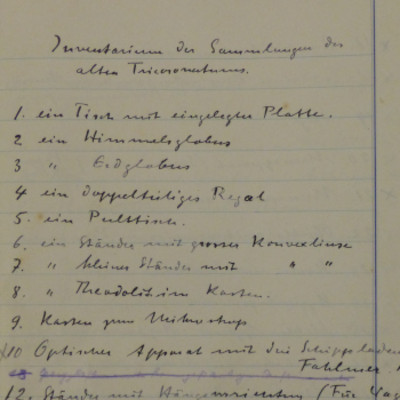 Inventarium der Sammlungen des
alten Triesnerateums.
1. ein Tisch mit eingelegter Platte.
2 ein Himmelsglobus
3 " Erdglobus
4 ein doppelteiliges Regal
5. ein Pulttisch.
6. ein Ständer mit grosser Konvexlinse
7. " kleiner Ständer mit " "
8. " Theodolit im Kasten.
9. Kasten zum Mikroskop
10 Optischer Apparat mit drei
12. Ständer mit (Für